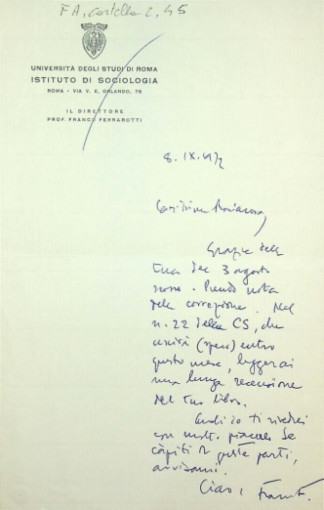 FA, cartella 2, 45
UNIVERSITÀ DEGLI STUDI DI ROMA
ISTITUTO DI SOCIOLOGIA
ROMA - VIA V. E. ORLANDO, 75
IL DIRETTORE
PROF. FRANCO FERRAROTTI
8. IX. 1972
Carissima Mariarosa,
Grazie della
tua del 3 agosto
scorso. Prendo nota
della correzione. Nel
n. 22 della CS, che
uscirà (spero) entro
questo mese, leggerai
una lunga recensione
del tuo libro.
Anch'io ti rivedrei
con molto piacere. Se
capiti in queste parti,
avvisami.
Ciao,